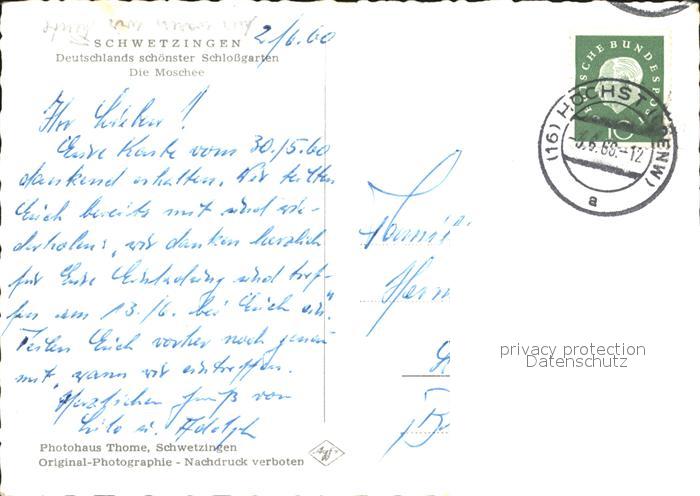 2/6.60
SCHWETZINGEN
Deutschlands schönster Schloßgarten
Die Moschee
Ihr Lieben!
Eure Karte vom 30./5.60
dankend erhalten. Wir teilten
Euch bereits mit und wie-
derholen: "wir danken herzlich
für Eure Einladung und tref-
fen am 13./6. bei Euch ein".
Teilen Euch vorher noch genau
mit, wann wir eintreffen.
Herzlichen Gruß von
Lilo u. Adolph
Photohaus Thome, Schwetzingen
Original-Photographie - Nachdruck verboten
DEUTSCHE BUNDESPOST
10
(16) HÖCHST (ODENW)
-3.6.60.-12
a
Famili
Herm
privacy protection
Datenschutz